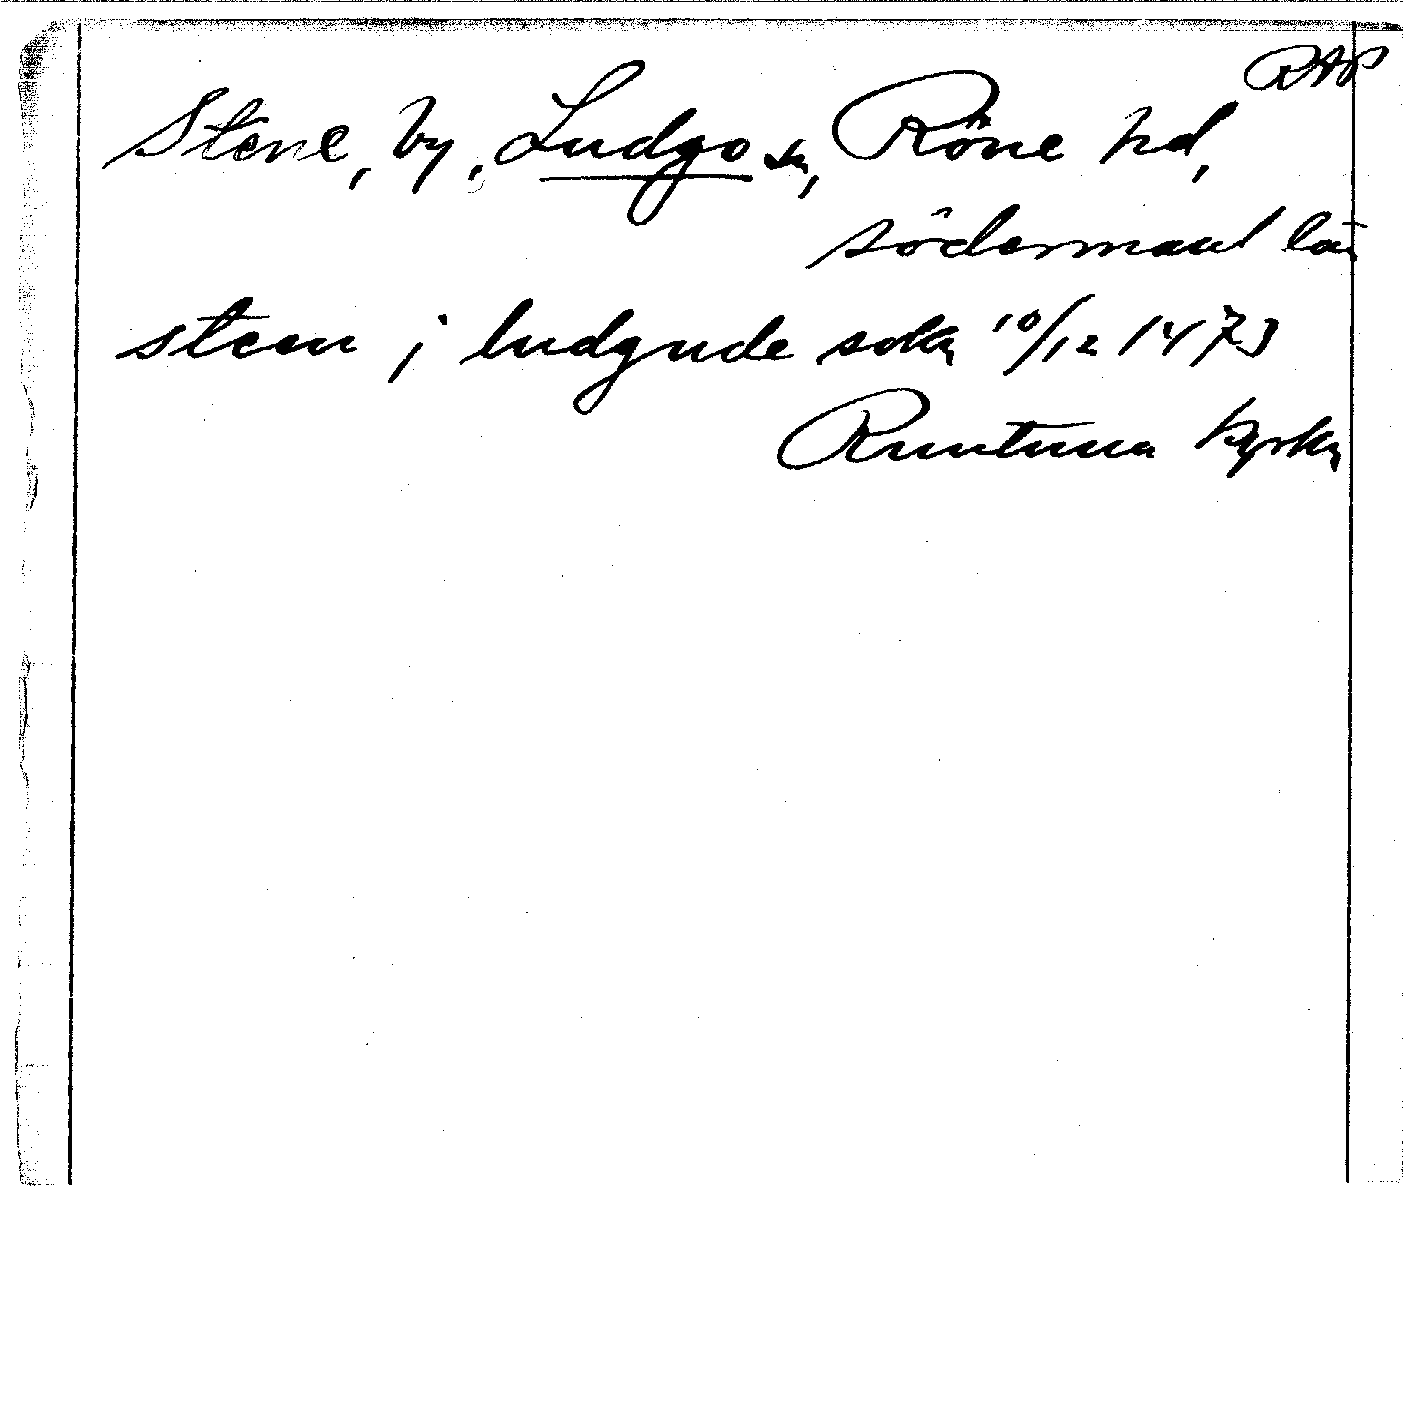 RAP
Stene, by, Ludgo sn, Röne hd,
södermanl län
steen j ludgude sokn 10/12 1473
Runtuna kyrka